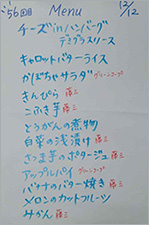 56回目 Menu 12/12
チーズinハンバーグ
デミグラスソース
キャロットバターライス
かぼちゃサラダ グリーンコープ
きんぴら 藤三
こふき芋 藤三
とうがんの煮物
白菜の浅漬け 藤三
さつま芋のポタージュ 藤三
アップルパイ グリーンコープ
バナナのバター焼き 藤三
メロンのカットフルーツ
みかん 藤三